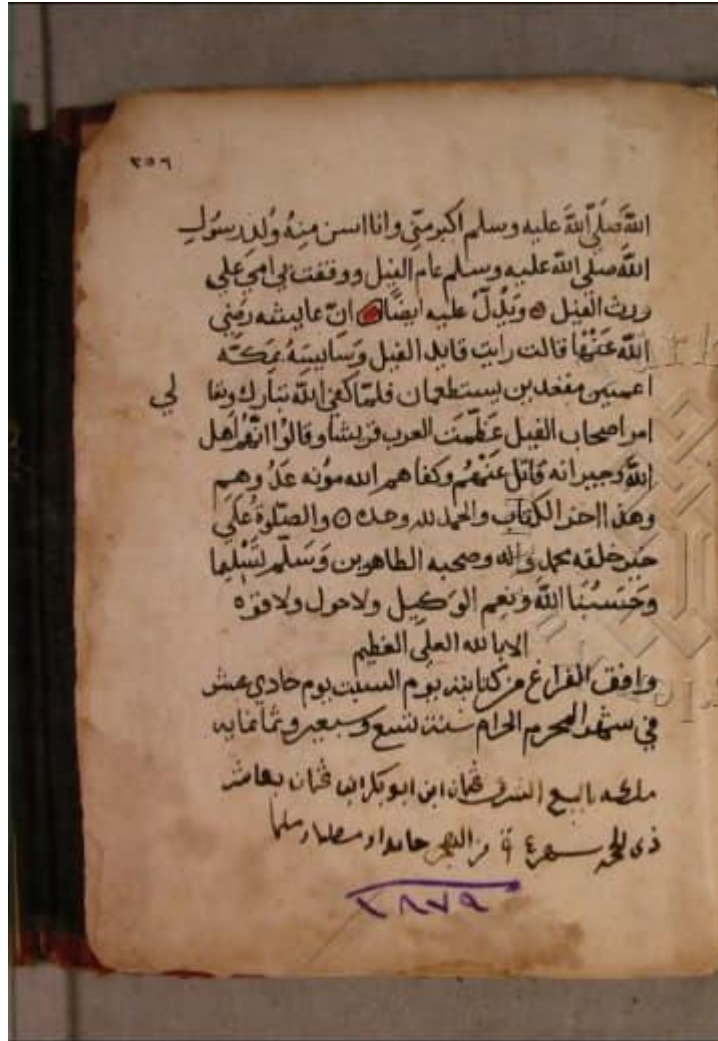 ٣٥٦
الله صلى الله عليه وسلم اكبر مني وانا اسن منه ولد رسول
الله صلى الله عليه وسلم عام الفيل ووقفت بي امي على
روث الفيل ۞ ويدل عليه ايضًا ان عايشه رضي
الله عنها قالت رايت قايد الفيل وسايسه بمكه
اعميين مقعدين يستطعمان فلما كفى الله تبارك وتعا لي
امر اصحاب الفيل عظمت العرب قريشا وقالوا انهم اهل
الله وجيرانه قاتل عنهم وكفاهم الله مؤنه عدوهم
وهذا اخر الكتاب والحمد لله وحده ۞ والصلوة على
خير خلقه محمد واله وصحبه الطاهرين وسلم تسليما
وحسبنا الله ونعم الوكيل ولا حول ولا قوه
الا بالله العلي العظيم
وافق الفراغ من كتابته يوم السبت يوم حادي عشر
في شهر المحرم الحرام سنة تسع وسبعين وثمانمايه
ملكه عثمان ابن ابو بكر عثمان
ذي الحجه
٢٨٧٩